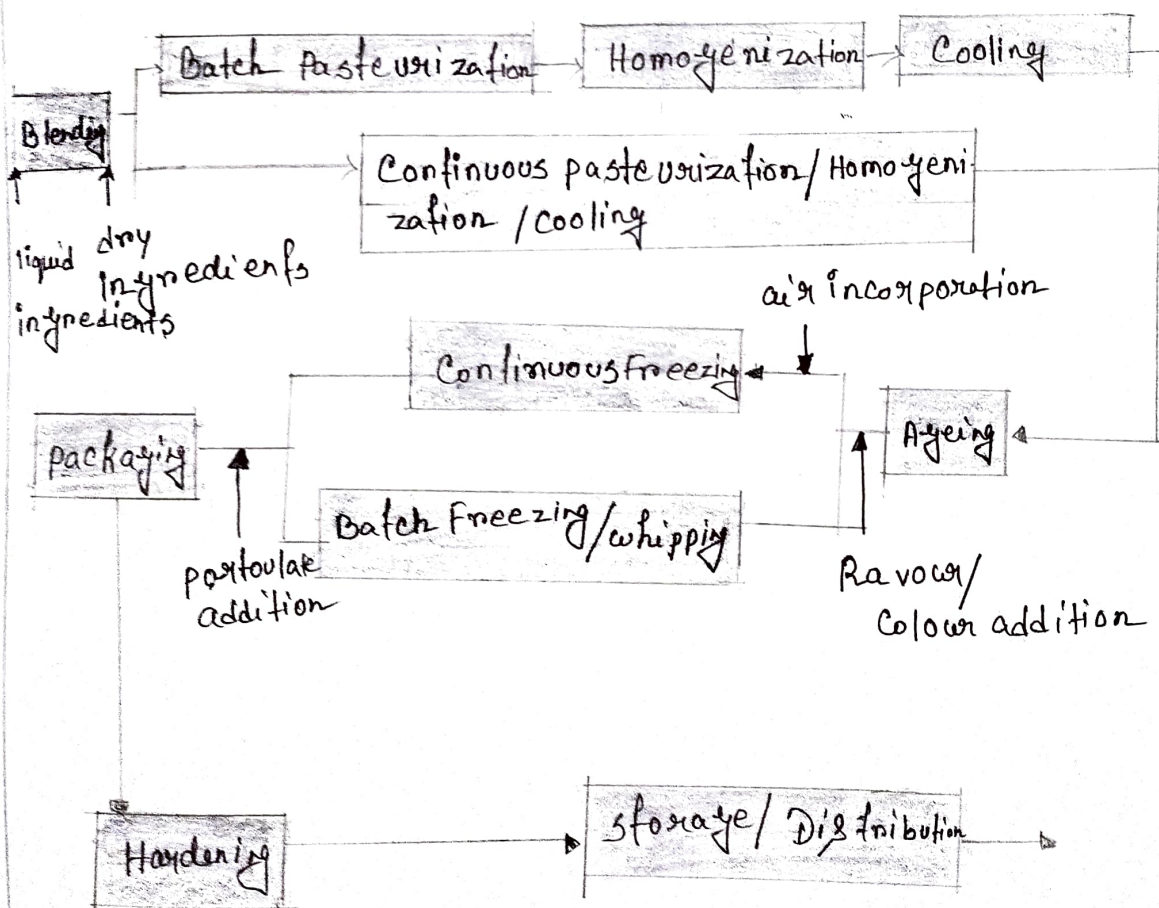 Batch Pasteurization
Homogenization
Cooling
Blending
Continuous pasteurization/Homogeni
zation /cooling
liquid
ingredients
dry
ingredients
air incorporation
Continuous Freezing
Ageing
packaging
Batch Freezing/whipping
partoulate
addition
Ravour/
Colour addition
Hardening
storage/ Distribution